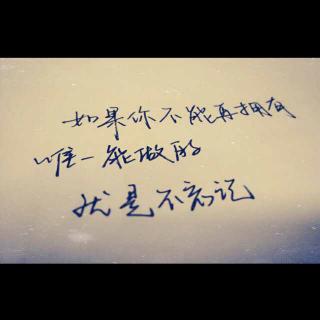 如果你不能再拥有
唯一能做的
就是不忘记